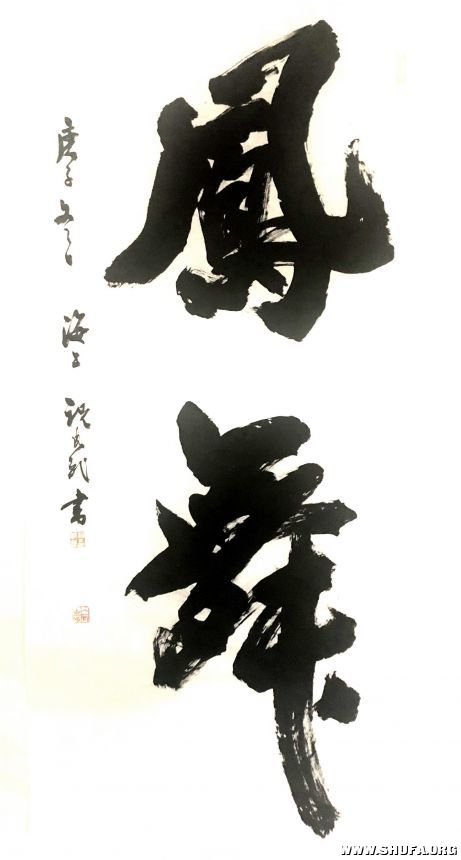 鳳舞
庚子冬日 海上 祝成武書
WWW.SHUFA.ORG